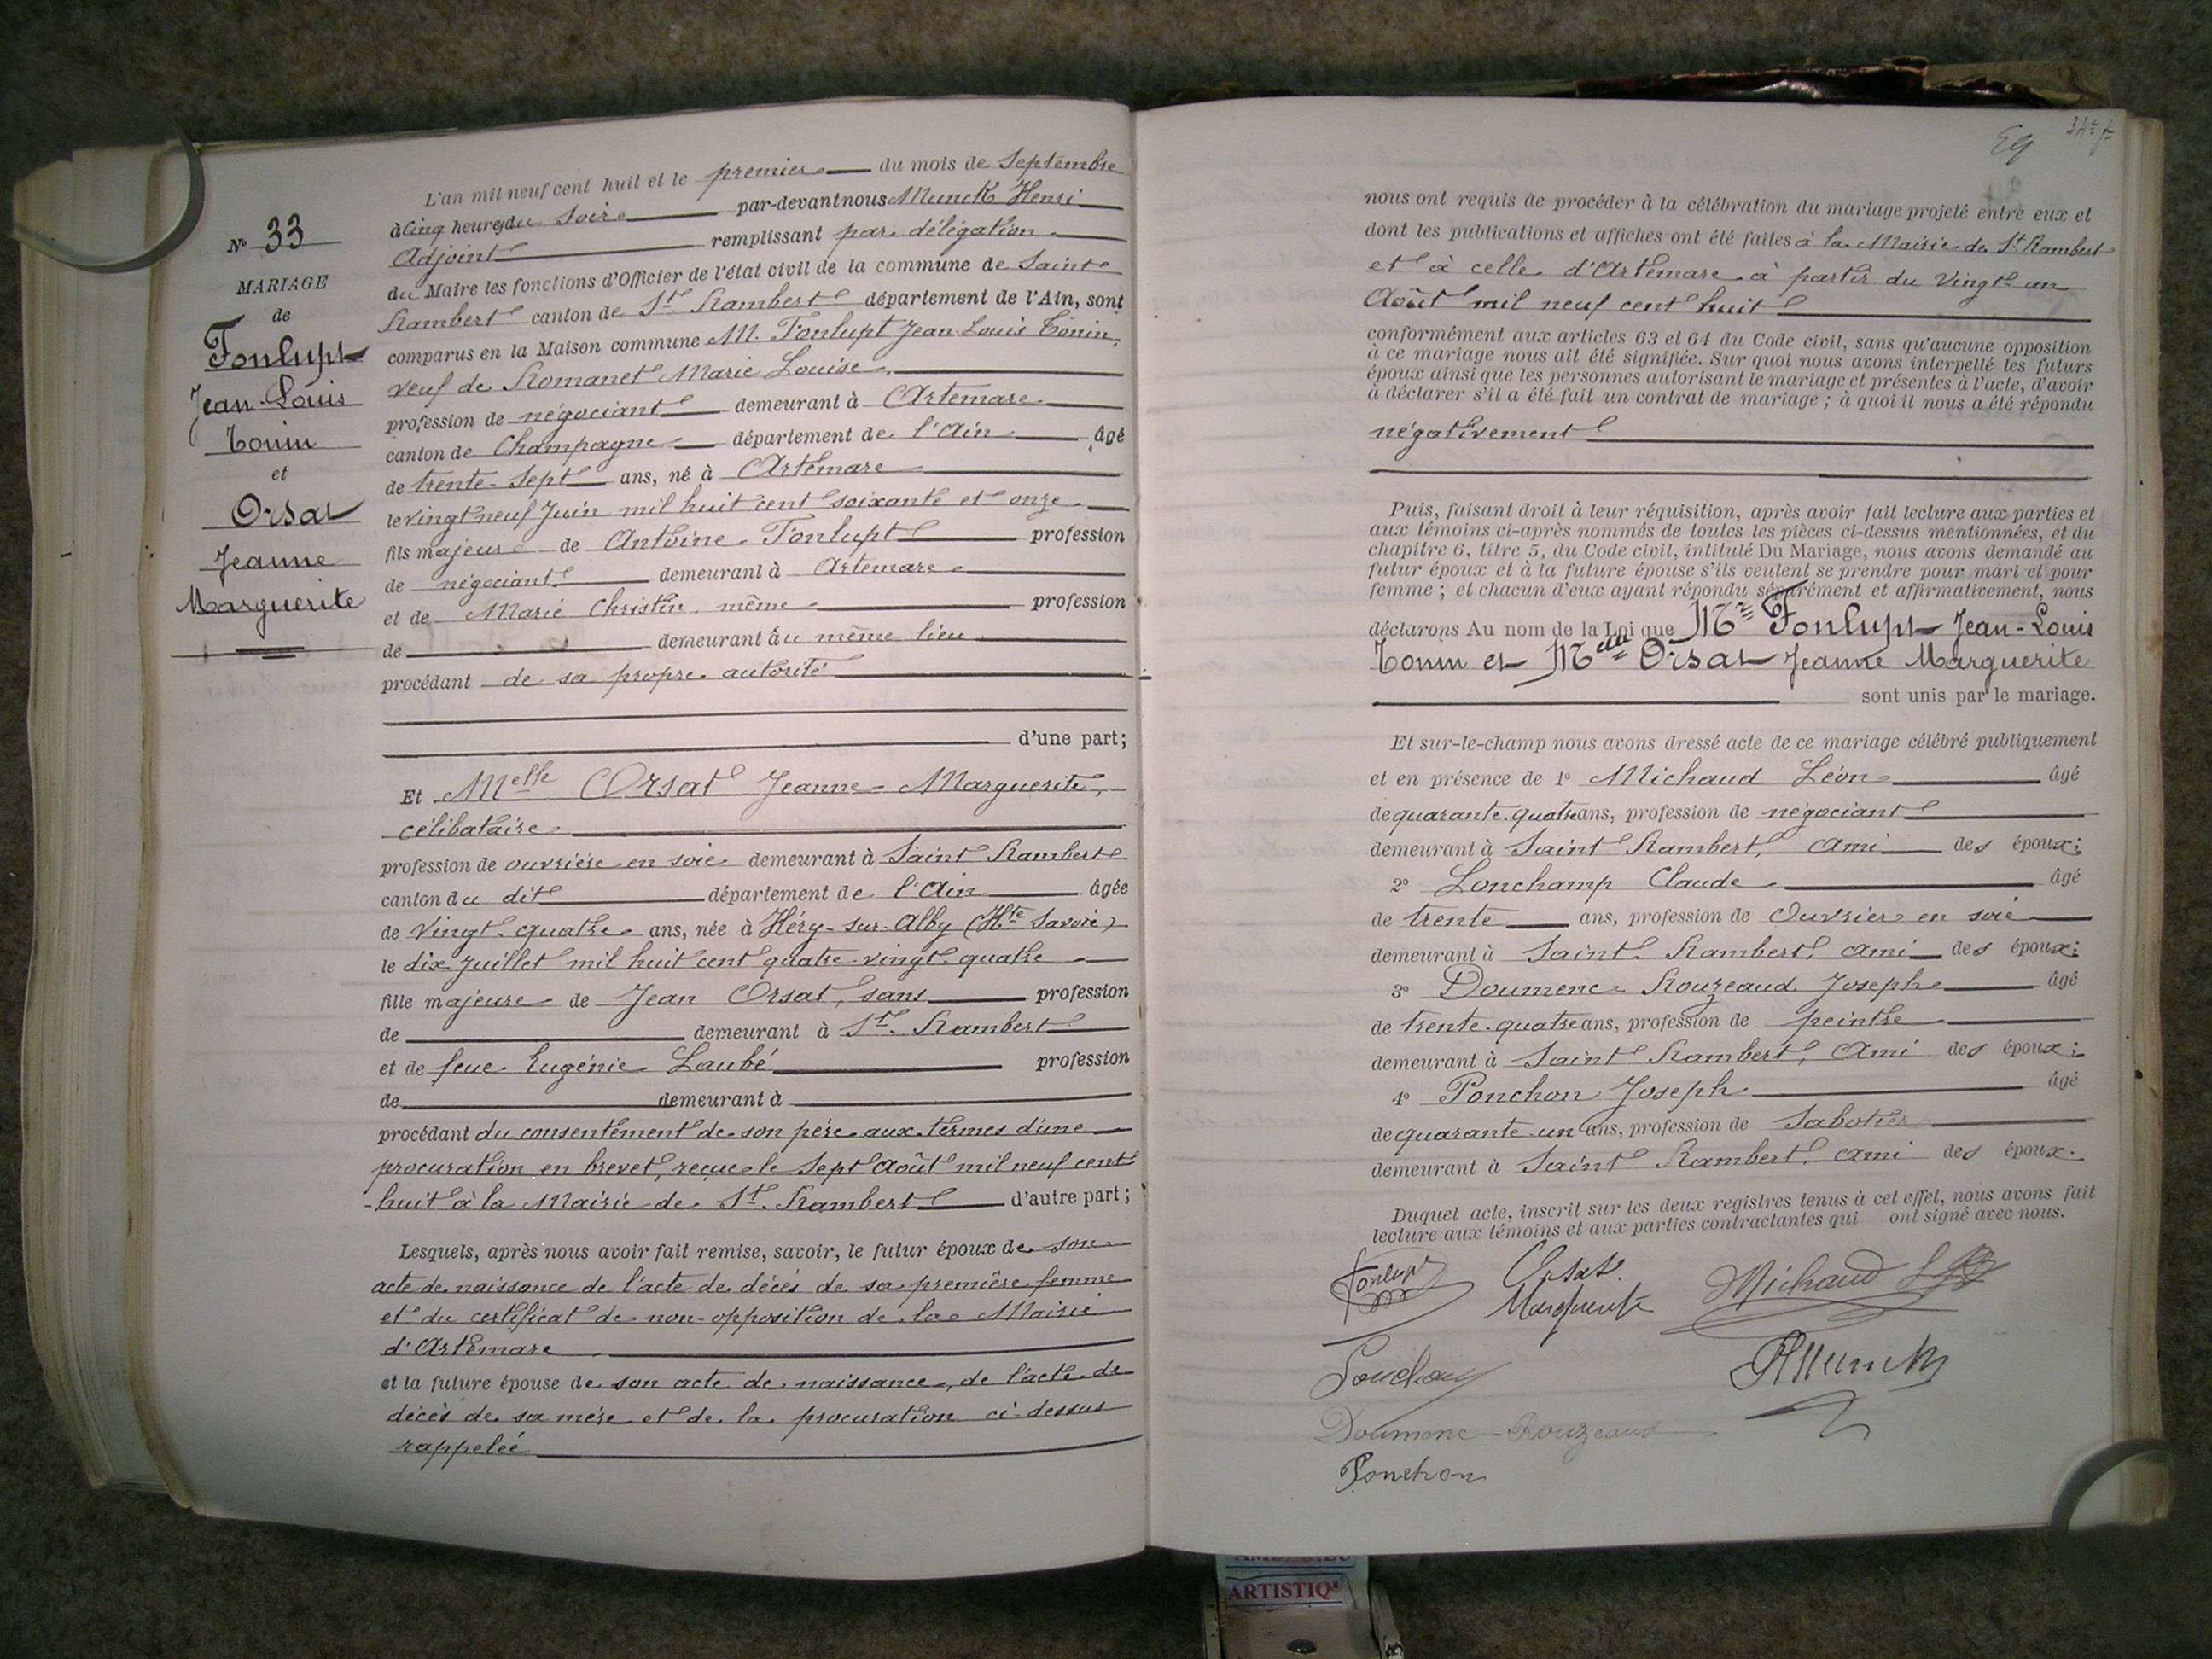 N° 33
MARIAGE
de
Fonlupt
Jean-Louis
Tonin
et
Orsat
Jeanne
Marguerite
L'an mil neuf cent huit et le premier du mois de Septembre
à Cinq heures du Soir par-devant nous Munck Henri
Adjoint remplissant par délégation
du Maire les fonctions d'Officier de l'état civil de la commune de Saint
Rambert canton de St Rambert département de l'Ain, sont
comparus en la Maison commune M. Fonlupt Jean Louis Tonin,
veuf de Romanet Marie Louise,
profession de négociant demeurant à Artemare
canton de Champagne département de l'Ain âgé
de trente-sept ans, né à Artemare
le vingt neuf Juin mil huit cent soixante et onze
fils majeur de Antoine Fonlupt profession
de négociant demeurant à Artemare
et de Marie Christin même profession
de demeurant au même lieu
procédant de sa propre autorité
d'une part;
Et Melle Orsat Jeanne Marguerite,
célibataire
profession de ouvrière en soie demeurant à Saint Rambert
canton du dit département de l'Ain âgée
de vingt-quatre ans, née à Héry-sur-Alby (Hte Savoie)
le dix Juillet mil huit cent quatre-vingt-quatre
fille majeure de Jean Orsat, sans profession
de demeurant à St. Rambert
et de feue Eugénie Laubé profession
de demeurant à
procédant du consentement de son père aux termes d'une
procuration en brevet, reçue le Sept Août mil neuf cent
-huit à la Mairie de St. Rambert d'autre part;
Lesquels, après nous avoir fait remise, savoir, le futur époux de son
acte de naissance de l'acte de décès de sa première femme
et du certificat de non-opposition de la Mairie
d'Artemare
et la future épouse de son acte de naissance, de l'acte de
décès de sa mère et de la procuration ci-dessus
rappelée
nous ont requis de procéder à la célébration du mariage projeté entre eux et
dont les publications et affiches ont été faites à la Mairie de St. Rambert
et à celle d'Artemare à partir du vingt un
Août mil neuf cent huit
conformément aux articles 63 et 64 du Code civil, sans qu'aucune opposition
à ce mariage nous ait été signifiée. Sur quoi nous avons interpellé les futurs
époux ainsi que les personnes autorisant le mariage et présentes à l'acte, d'avoir
à déclarer s'il a été fait un contrat de mariage; à quoi il nous a été répondu
négativement
Puis, faisant droit à leur réquisition, après avoir fait lecture aux parties et
aux témoins ci-après nommés de toutes les pièces ci-dessus mentionnées, et du
chapitre 6, titre 5, du Code civil, intitulé Du Mariage, nous avons demandé au
futur époux et à la future épouse s'ils veulent se prendre pour mari et pour
femme; et chacun d'eux ayant répondu séparément et affirmativement, nous
déclarons Au nom de la Loi que Mr Fonlupt Jean-Louis
Tonin et Melle Orsat Jeanne Marguerite
sont unis par le mariage.
Et sur-le-champ nous avons dressé acte de ce mariage célébré publiquement
et en présence de 1° Michaud Léon âgé
de quarante-quatre ans, profession de négociant
demeurant à Saint Rambert, ami des époux;
2° Lonchamp Claude âgé
de trente ans, profession de Ouvrier en soie
demeurant à Saint Rambert, ami des époux;
3° Doumenc Rouzeaud Joseph âgé
de trente-quatre ans, profession de peintre
demeurant à Saint Rambert, Ami des époux;
4° Ponchon Joseph âgé
de quarante-un ans, profession de Sabotier
demeurant à Saint Rambert, ami des époux.
Duquel acte, inscrit sur les deux registres tenus à cet effet, nous avons fait
lecture aux témoins et aux parties contractantes qui ont signé avec nous.
Fonlupt Orsat Michaud L
Marguerite
HMunck
Doumenc-Rouzeaud
Ponchon
ARTISTIQ